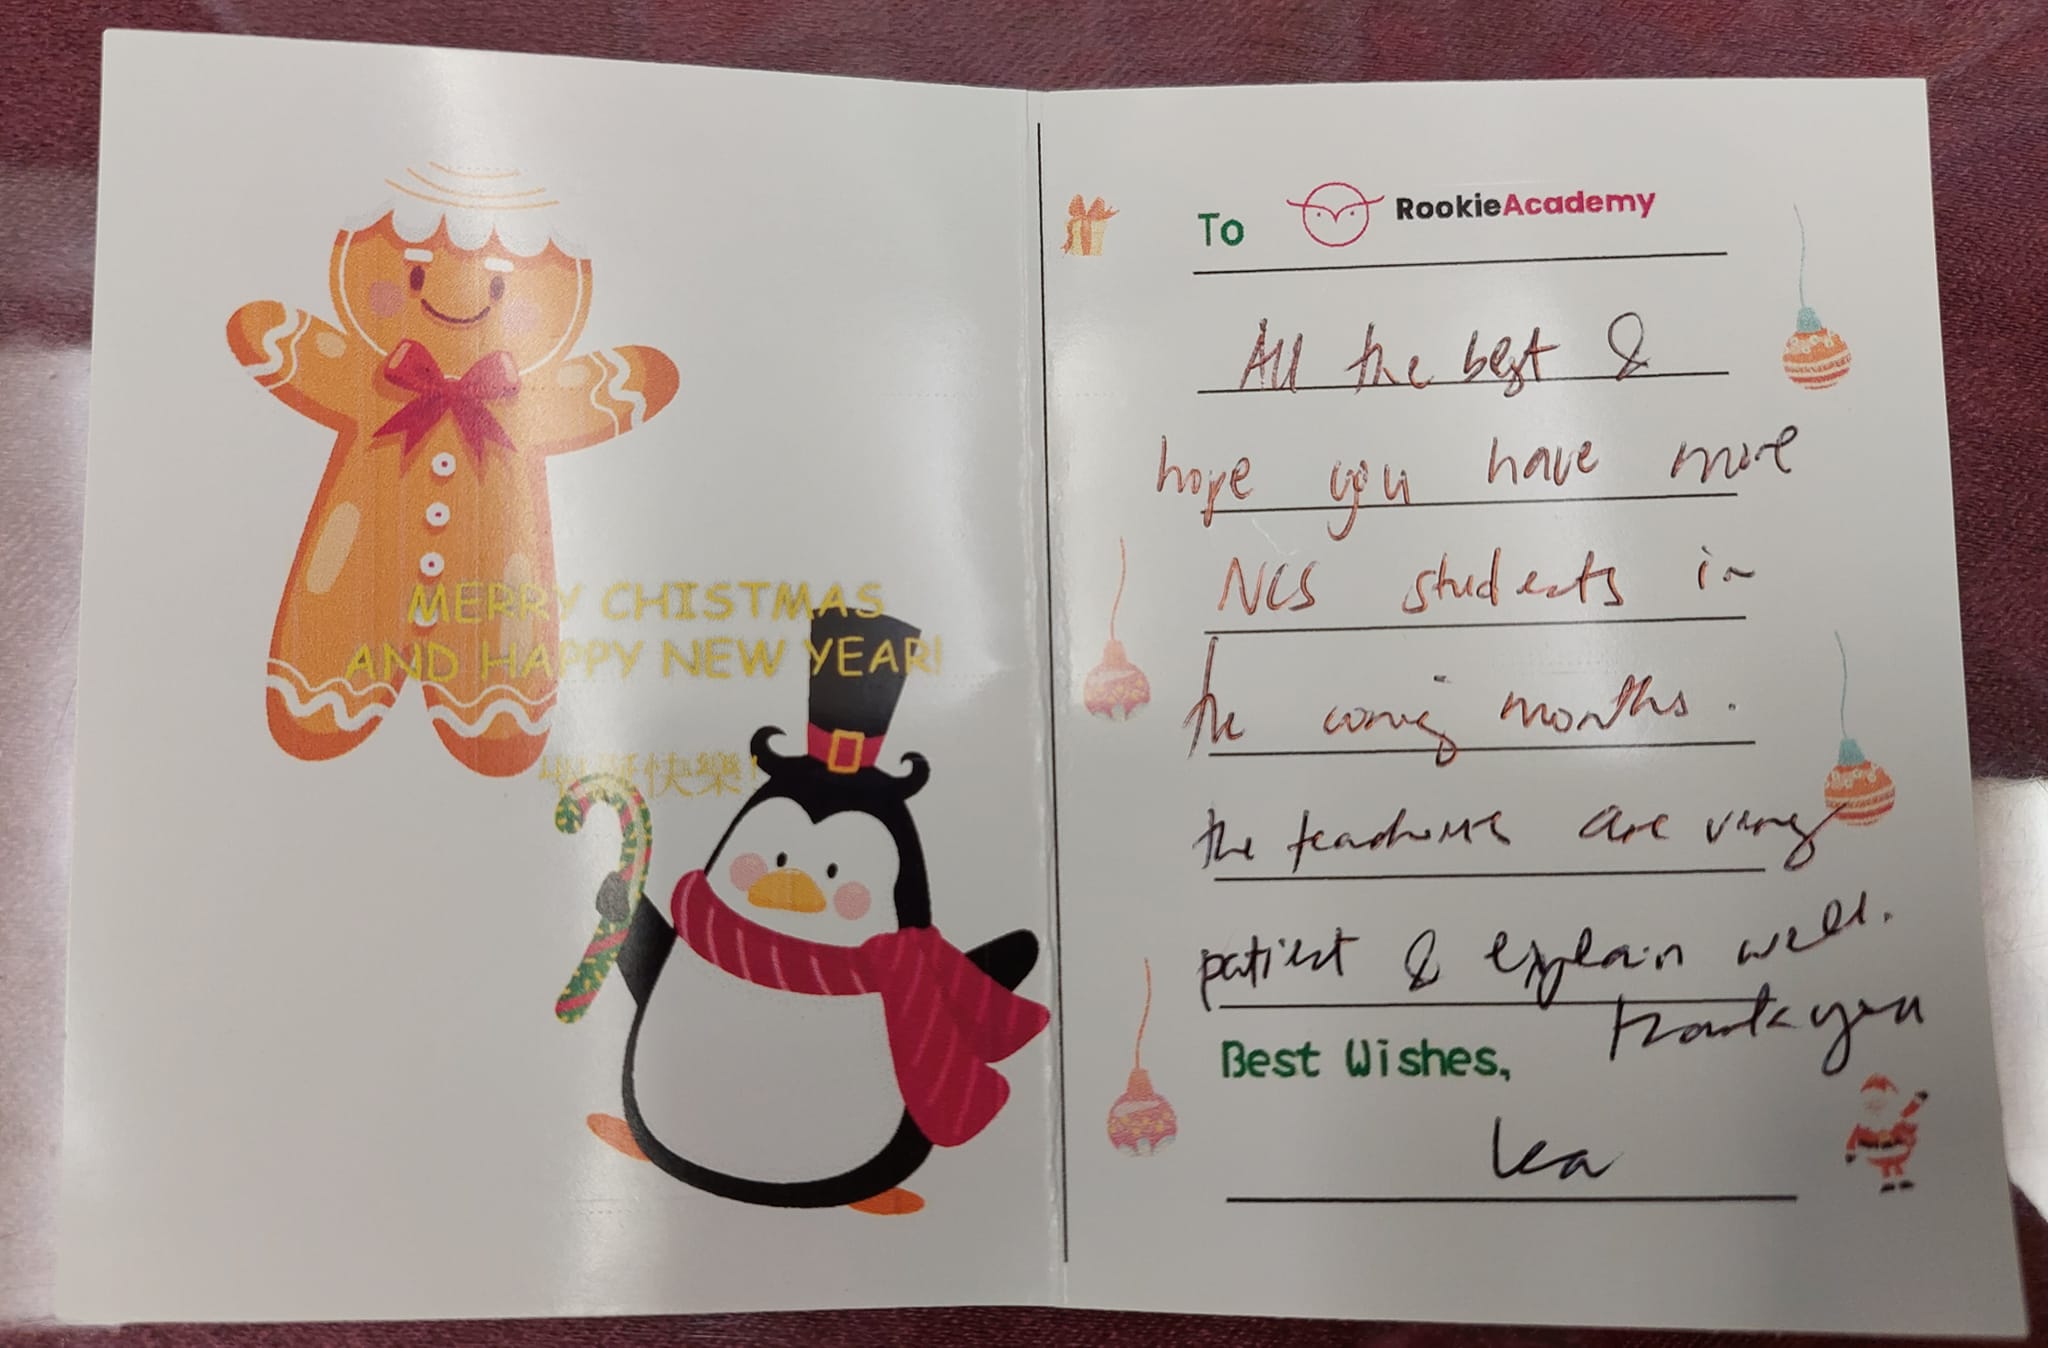 MERRY CHISTMAS
AND HAPPY NEW YEAR!
聖誕快樂!
To RookieAcademy
All the best &
hope you have more
NCS students in
the coming months.
the teachers are very
patient & explain well.
Thank you
Best Wishes,